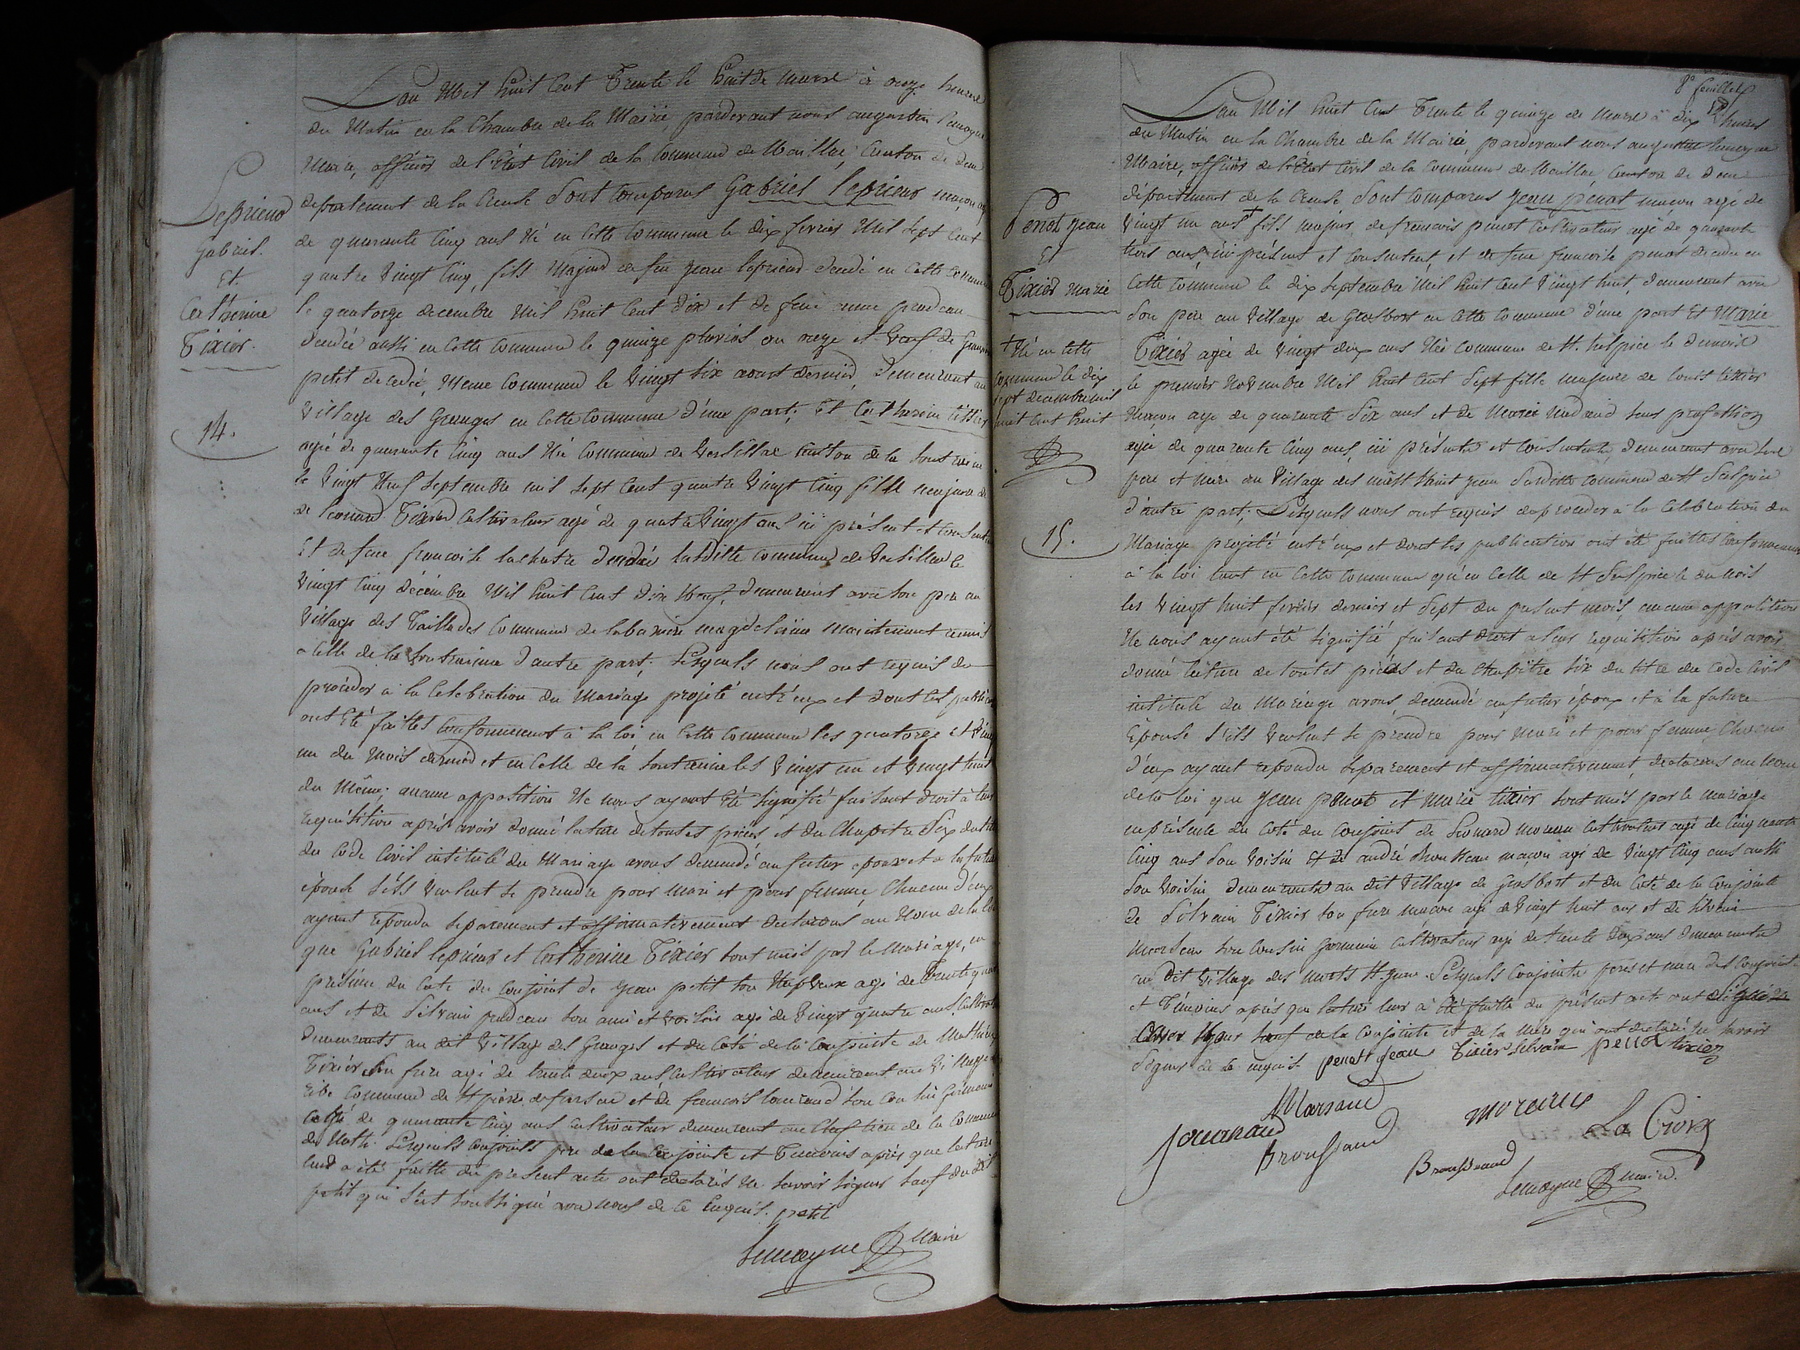 Leprieur
Gabriel.
Et
Catherine
Tixier.
14.
L'an Mil huit Cent Trente le huit de mars à onze heures
du Matin en la Chambre de la Mairie, pardevant nous augustin lemoyne
Maire, officier de l'état Civil de la Commune de Mailhac, Canton de Dun
département de la Creuse Sont Comparus Gabriel leprieur maçon agé
de quarante Cinq ans Né en Cette Commune le dix fevrier Mil Sept Cent
quatre Vingt Cinq, fils Majeur de feu jean leprieur décédé en Cette Commune
le quatorze decembre Mil huit Cent dix et de feue anne pradeau
décédée aussi en Cette Commune le quinze pluviôs an onze et Veuf de
petit décédée, Meme Commune le Vingt Six aoust dernier, Demeurant au
Village des Granges en Cette Commune d'une part; Et Catherine tixier
agée de quarante Cinq ans Née Commune de Versillac Canton de la Souterraine
le Vingt Neuf Septembre mil Sept Cent quatre Vingt Cinq fille majeure de
de léonard Tixier Cultivateur agé de quatre Vingt ans ici présent et Consentant
Et de feue francoise lachatre decedée Susditte Commune de Versillac le
Vingt Cinq décembre Mil huit Cent dix Neuf, demeurant avec Son père au
Village des Taillades Commune de labarière magdelaine maintenant réunis
a Celle de la Soutraine d'autre part; Lesquels nous ont requis de
procéder à la Celebration du Mariage projété entr'eux et dont les publications
ont été faittes Conformement à la loi en Cette Commune les quatorze et Vingt
un du mois dernier et en Celle de la Soutraine les Vingt un et Vingt huit
du Même; aucune opposition Ne nous ayant été Signifié faisant droit à leur
requisition après avoir donné lecture de toutes pièces et du Chapitre Six du titre
du Code Civil intitulé du Mariage avons demandé au futur epoux et a la future
épouse s'ils Veulent Se prendre pour mari et pour femme, Chacun d'eux
ayant repondu Separement et affirmativement declarons au Nom de la loi
que Gabriel leprieur et Catherine Tixier Sont unis par le Mariage, en
présence du Coté du Conjoint de jean petit Son Nepveux agé de Trente quatre
ans et de Silvain pradeau Son ami et Voisin agé de Vingt quatre ans Cultivateurs
demeurants au dit Village des Granges et du Coté de la Conjointe de Mathieu
Tixier Son frere agé de trente deux ans, Cultivateur demeurant au Village
Commune de St pierre de fursac et de francois Son Cousin Germain
agé de quarante Cinq ans Cultivateur demeurant au Chef lieu de la Commune
de Noth. Lesquels Conjoints père de la Conjointe et Temoins après que lecture
leur a été faitte du présent acte ont declarés Ne Savoir Signer Sauf du dit
petit qui S'est Soussigné avec nous de Ce Enquis. petit
Lemoyne Maire
8e feuillet
Penot Jean
Et
Tixier Marie
+ Né en Cette
Commune le dix
Sept decembre mil
huit Cent huit
15.
L'an Mil huit Cent Trente le quinze de mars à dix heures
du Matin en la Chambre de la Mairie, pardevant nous augustin lemoyne
Maire, officier de l'Etat Civil de la Commune de Mailhac Canton de Dun
département de la Creuse Sont Comparus jean pénot maçon agé de
Vingt un ans + fils majeur de francois penot Cultivateur agé de quarante
trois ans, ici présent et Consentant et de feue francoise penot decedée en
Cette Commune le dix Septembre Mil huit Cent Vingt huit, demeurant avec
Son père au Village de Grosbost en Cette Commune d'une part Et Marie
Tixier agée de Vingt deux ans Née Commune de St. Sulpice le Dunois
le premier Novembre Mil huit Cent Sept fille majeure de louis tixier
Maçon agé de quarante Six ans et de Marie Nadaud Sans profession
agée de quarante Cinq ans, ici présents et Consentants, demeurant avec Ses
père et mère au Village des Saint jean Susditte Commune de St Sulpice
d'autre part; Lesquels nous ont requis de proceder à la Celebration du
Mariage projété entr'eux et dont les publications ont été faittes Conformement
à la loi tant en Cette Commune qu'en Celle de St Sulpice le dunois
les Vingt huit fevrier dernier et Sept du présent mois, aucune opposition
Ne nous ayant été Signifié faisant droit a leur requisition après avoir
donné lecture de toutes pièces et du Chapitre Six du titre du Code Civil
intitulé du Mariage avons demandé au futur époux et à la future
Epouse s'ils Veulent Se prendre pour Mari et pour femme, Chacun
d'eux ayant repondu Separement et affirmativement, declarons au Nom
de la loi que jean penot et Marie tixier Sont unis par le mariage
en présence du Coté du Conjoint de Léonard moreau Cultivateur agé de Cinquante
Cinq ans Son Voisin et de andré Brousseau maçon agé de Vingt Cinq ans aussi
Son Voisin demeurants au dit Village de Grosbost et du Coté de la Conjointe
de Silvain Tixier Son frere maçon agé de Vingt huit ans et de Silvain
Son Cousin Germain Cultivateur agé de trente deux ans demeurants
au dit Village des St jean. Lesquels Conjoints pères et mere des Conjoints
et Témoins après que lecture leur à été faitte du présent acte ont
avec Nous Sauf de la Conjointe et de la Mère qui ont declaré ne Savoir
Signer de Ce enquis penot jean Tixier Silvain penot tixier
Marsaud moreau La Croix
Jouanaud Broussaud Brousseaud
Lemoyne maire.